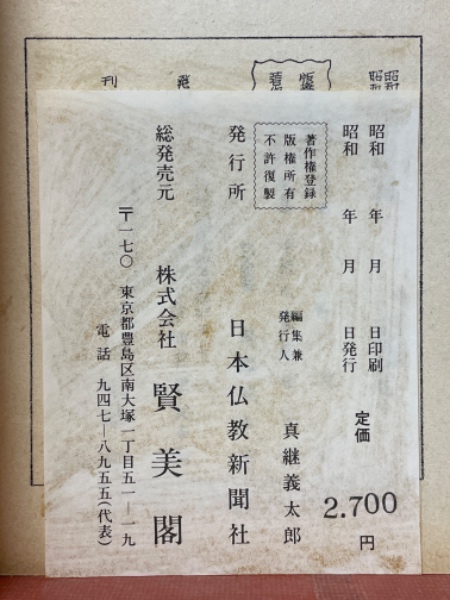 昭和　年　月　日印刷
昭和　年　月　日発行
定価
2.700
円
著作権登録
版権所有
不許復製
編集兼
発行人
真継義太郎
発行所　日本仏教新聞社
総発売元　株式会社　賢美閣
〒一七〇　東京都豊島区南大塚一丁目五一―一九
電話　九四七―八九五五(代表)
昭和
昭和
刊